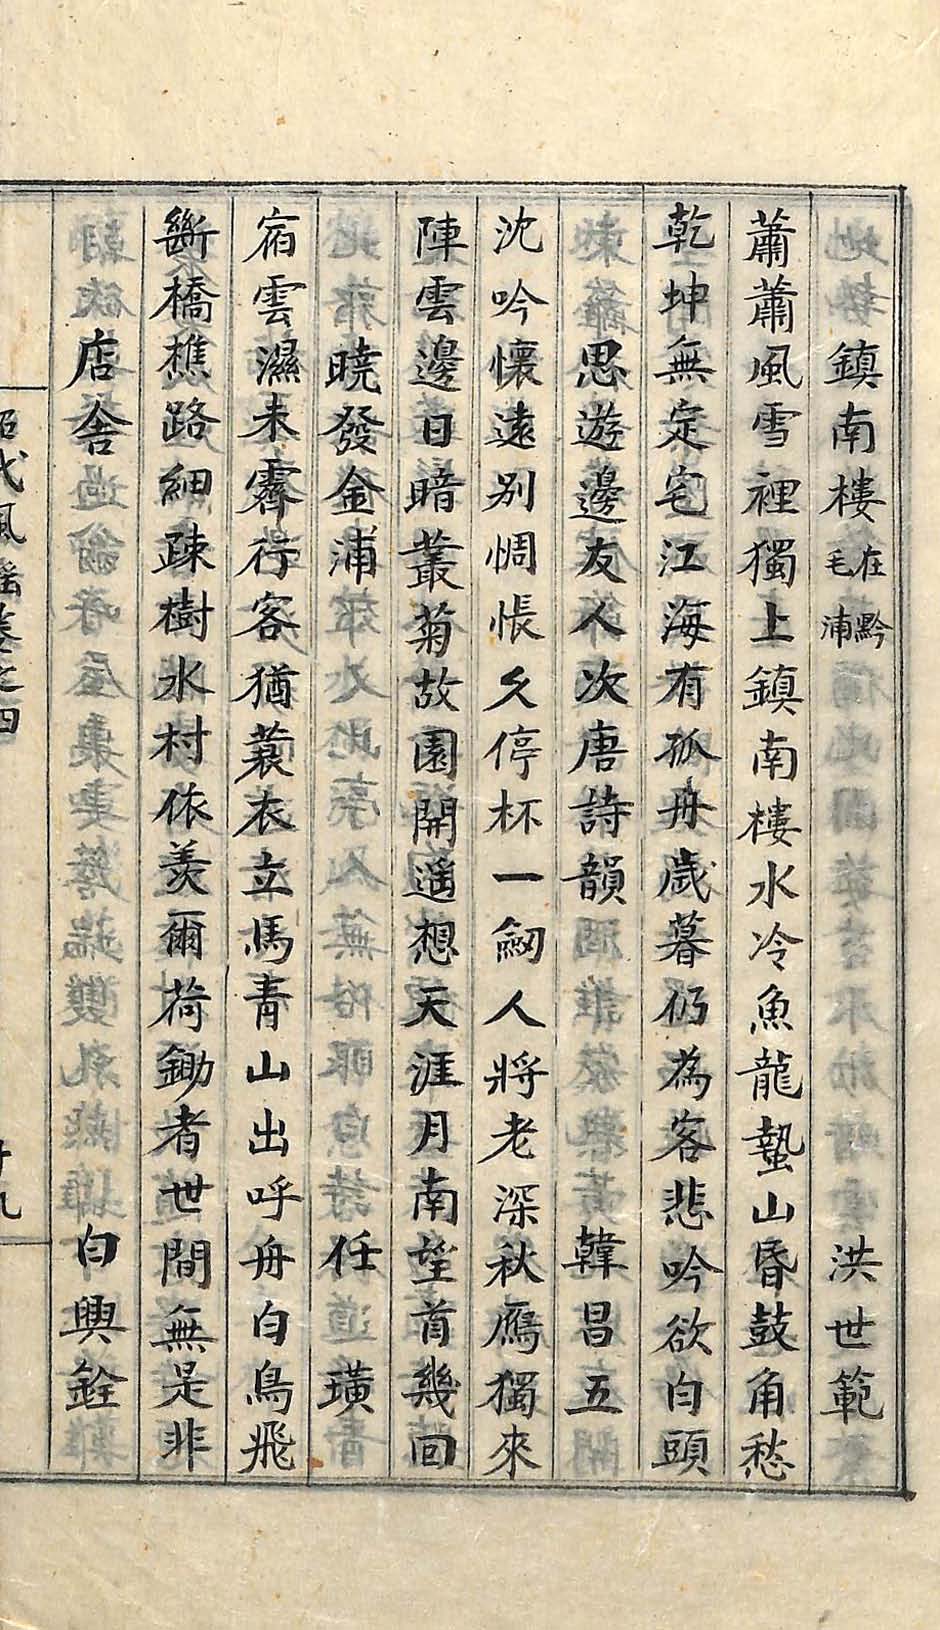 鎮南樓 在黔毛浦 洪世範
蕭蕭風雪裡獨上鎮南樓水冷魚龍蟄山昏鼓角愁
乾坤無定宅江海有孤舟歲暮仍為客悲吟欲白頭
思遊邊友人次唐詩韻 韓昌五
沈吟懷遠別惆悵久停杯一劒人將老深秋鴈獨來
陣雲邊日暗叢菊故園開遥想天涯月南望首幾回
曉發金浦 任璜
宿雲濕未霽行客猶蓑衣立馬青山出呼舟白鳥飛
斷橋樵路細疎樹水村依羨爾荷鋤者世間無是非
店舍 白興銓
昭代風謠卷之四 十九